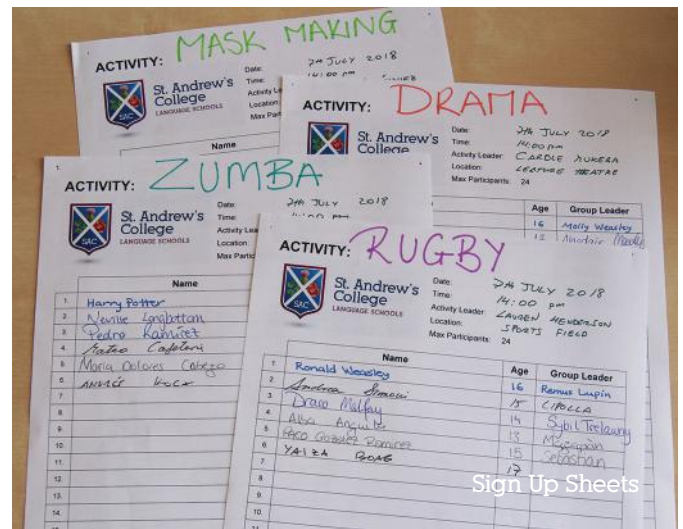 ACTIVITY: MASK MAKING
St. Andrew's
College
LANGUAGE SCHOOLS
SAC
Date: 7th JULY 2018
Time: 14:00 pm
Activity
Location:
Max Part
Name
ACTIVITY: DRAMA
St. Andrew's
College
Date: 7th JULY 2018
Time: 14:00 pm
Activity Leader: CAROLE
Location: LECTURE THEATRE
Max Participants: 24
Age Group Leader
16 Molly Weasley
ACTIVITY: ZUMBA
St. Andrew's
College
LANGUAGE SCHOOLS
SAC
Date: 7th JULY 2018
Time:
Activity Lea
Location:
Max Partic
Name
1. Harry Potter
2. Neville Longbottom
3. Pedro Ramirez
4. Mateo
5. Maria Dolores
6.
7.
8.
9.
10.
11.
12.
13.
14.
ACTIVITY: RUGBY
St. Andrew's
College
LANGUAGE SCHOOLS
SAC
Date: 7th JULY 2018
Time: 14:00 pm
Activity Leader: LAUREN HENDERSON
Location: SPORTS FIELD
Max Participants: 24
Name Age Group Leader
1. Ronald Weasley 16 Remus Lupin
2. Andrea Simoni 15 CIPOLLA
3. Draco Malfoy 14 Sybil Trelawny
4. Alba 13
5. Paco Gonzalez Ramirez 15 Sebastian
6. YAIZA 17
7.
8.
9.
10.
Sign Up Sheets